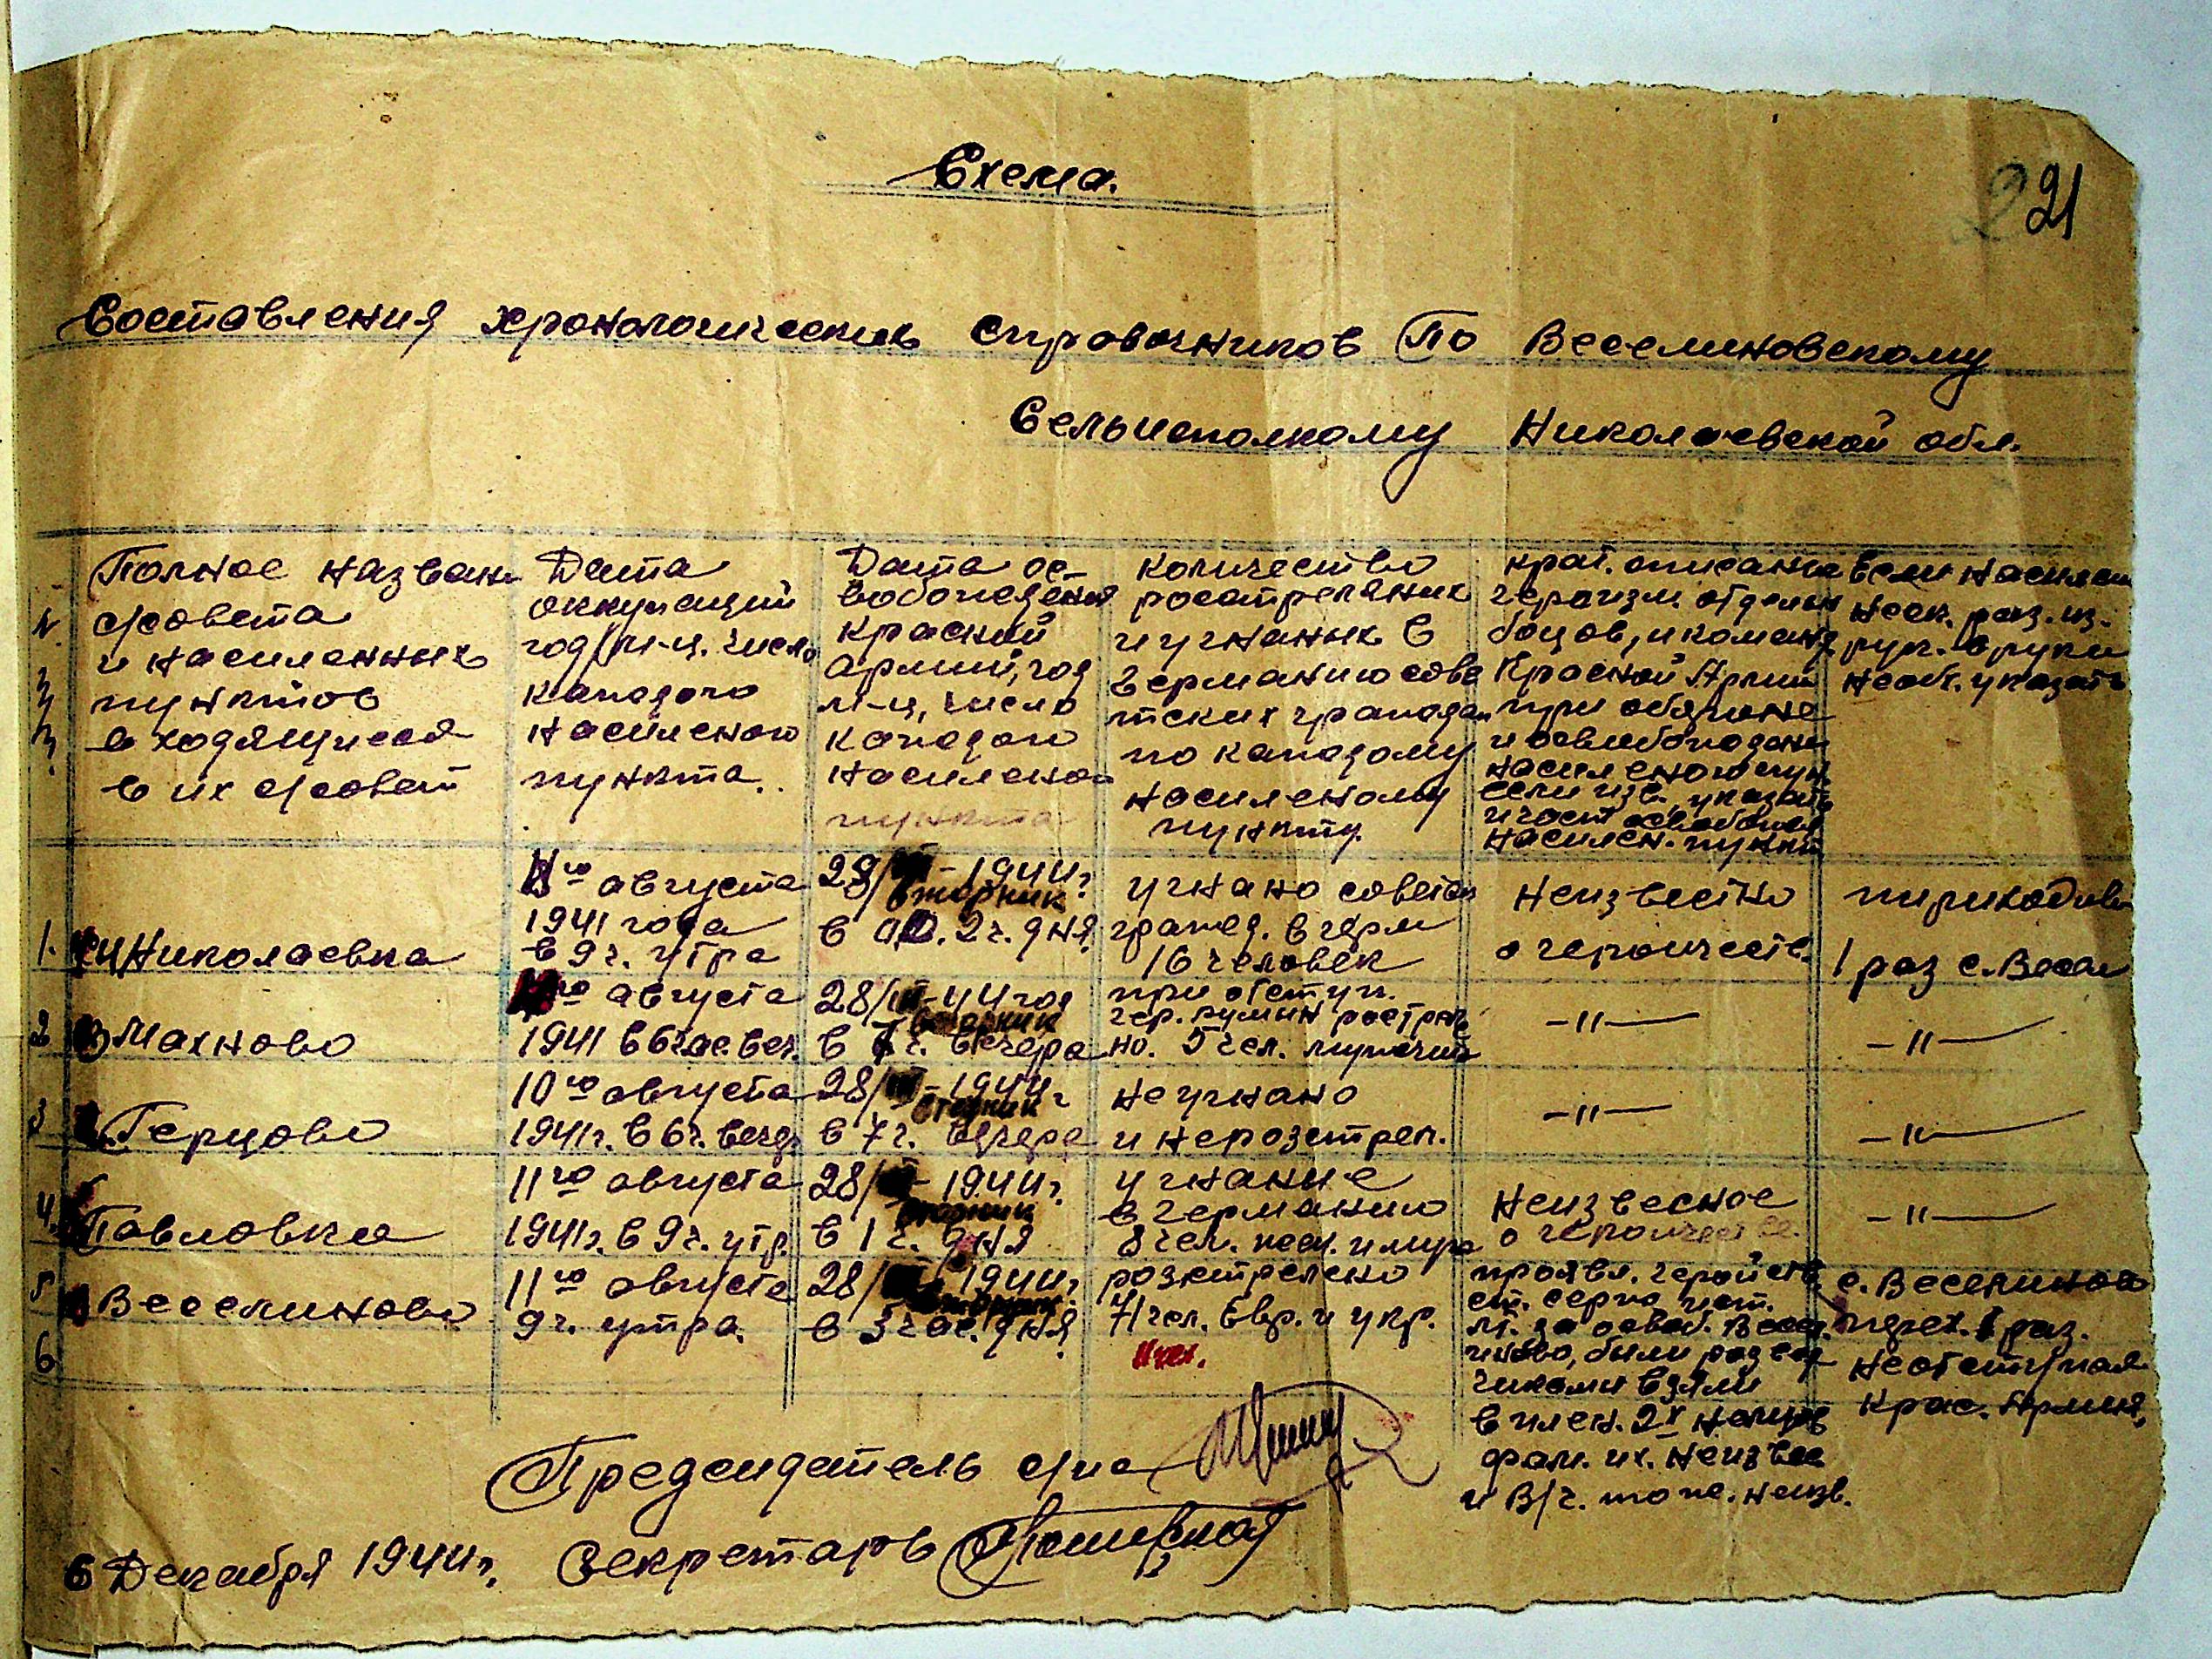 Схема.
21
Составления хронологических справочников По Веселиновскому
Сельисполкому Николаевской обл.
Полное назван
с/совета
и населенных
пунктов
в ходящиеся
в их с/совет
Дата
оккупаций
год/м-ц. число
каждого
населеного
пункта.
Дата ос-
вобождения
красной
армий, год
м-ц, число
каждого
населеного
пункта
Количество
росстреляных
и угнаных в
германию сове
тских граждан
по каждому
населеному
пункту.
крат. описание
героизм. отдельн
бойцов, и команд
Красной Армии
при обороне
и освобождени
населеного пун
если изв. указать
и част освободив
населен. пункт
Если населен
неск. раз. из.
рук. в руки
необ. указать
1. Николаевка
11го августа
1941 года
в 9 ч. утра
28/III-1944г
вторник
в 2 ч. дня
угнано советск
гражд. в герм
16 человек
Неизвестно
о героичеств.
1 раз с. Весел
2 Махново
августа
1941 в 6 час. веч.
28/III-44 год
вторник
в 7 ч. вечера
при отступ.
гер. румын расстреле
но. 5 чел. мужчин
-"-
-"-
3 Герцово
10го августа
1941г. в 6 ч. вечер
28/III-1944г
вторник
в 7 ч. вечера
не угнано
и нерозстрел.
-"-
-"-
4. Павловка
11го августа
1941г. в 9 ч. утр.
28/III-1944г.
вторник
в 1 ч. дня
угнание
в германию
8 чел.
Неизвесное
о героичестве.
-"-
5 Веселиново
11го августа
9 ч. утра.
28/III 1944г.
вторник
в 3 час. дня
розстрелено
71 чел. Евр. и укр.
чел.
проявл. геройств
ст. серж. и ст.
лт. за освоб. Весел.
иново, были развед
чиками взяли
в плен. 2х немцев
фам. их. неизвес
и В/ч. то же. неизв.
с. Веселиново
перех. 1 раз.
не отступая
Крас. Армия.
6
Председатель с/ис
6 Декабря 1944г. Секретарь